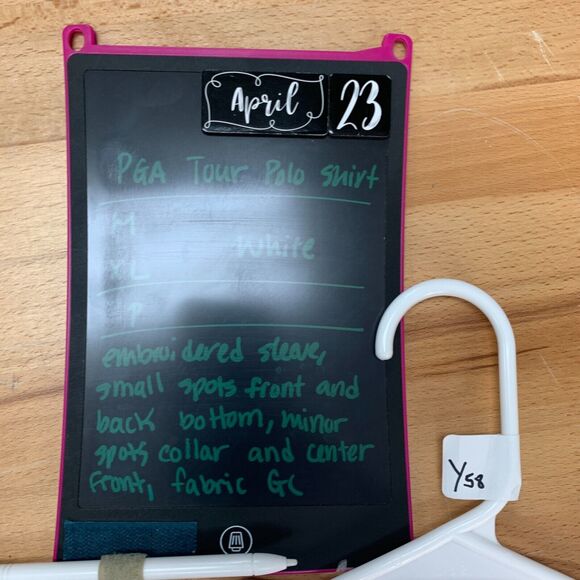 April 23
PGA Tour Polo shirt
M
White
XL
P
embroidered sleave,
small spots front and
back bottom, minor
spots collar and center
front, fabric GC
Y58